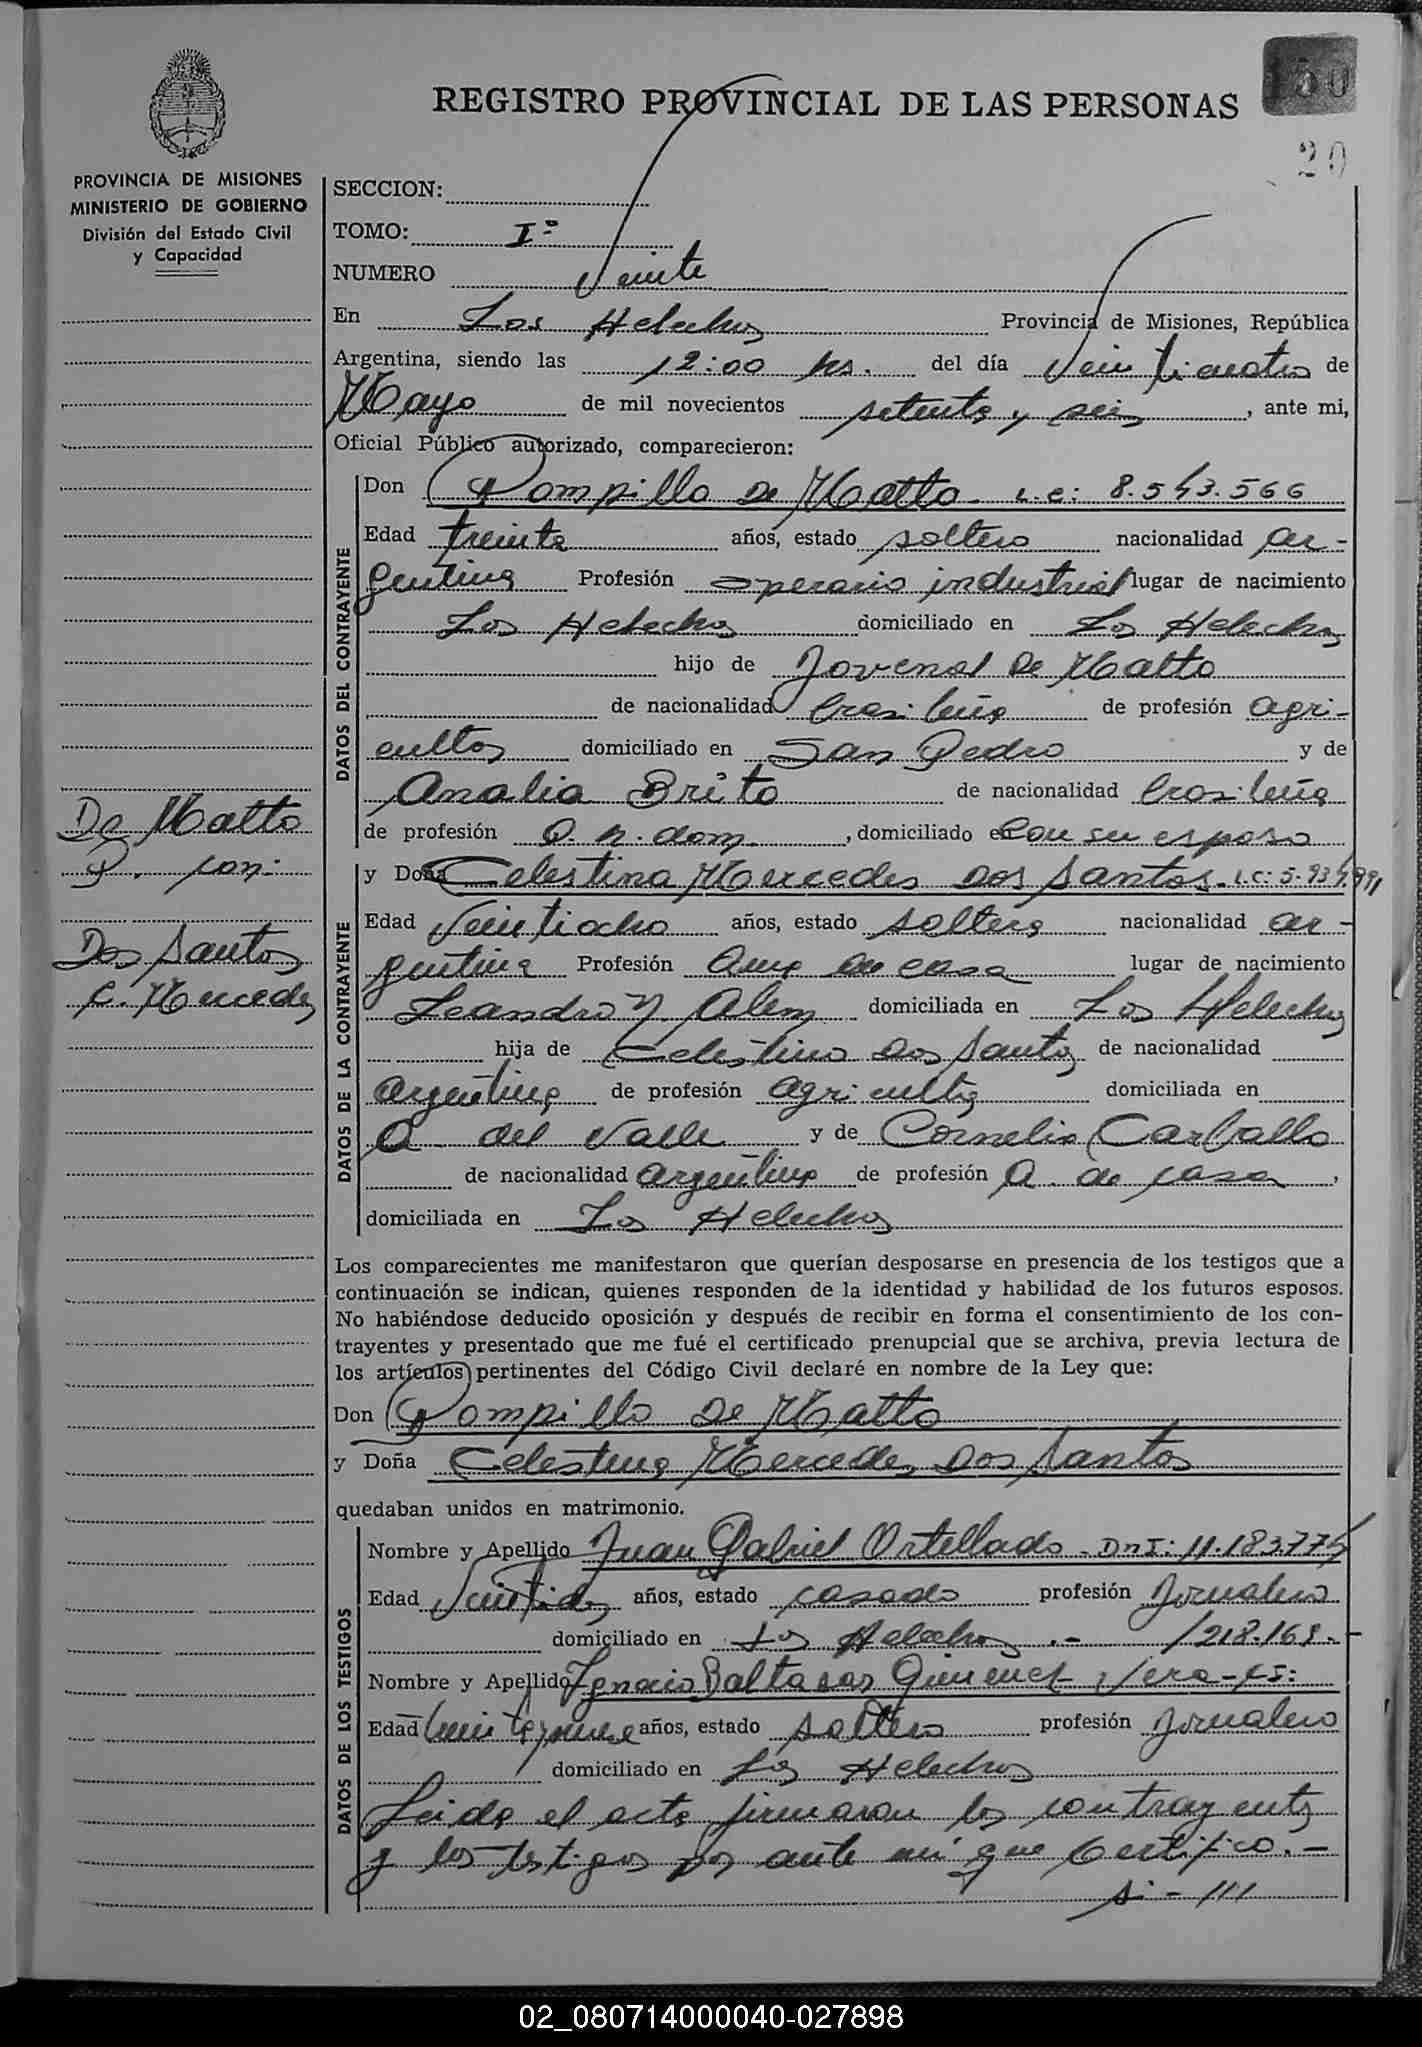 150
20
REGISTRO PROVINCIAL DE LAS PERSONAS
PROVINCIA DE MISIONES
MINISTERIO DE GOBIERNO
División del Estado Civil
y Capacidad
SECCION:
TOMO: Iº
NUMERO Veinte
En Los Helechos Provincia de Misiones, República
Argentina, siendo las 12:00 hs. del día Veinticuatro de
Mayo de mil novecientos setenta y seis, ante mi,
Oficial Público autorizado, comparecieron:
DATOS DEL CONTRAYENTE
Don Pompillo De Matto - L.E: 8.543.566
Edad treinta años, estado soltero nacionalidad ar-
gentina Profesión operario industrial lugar de nacimiento
Los Helechos domiciliado en Los Helechos
hijo de Jovenal De Matto
de nacionalidad brasileña de profesión agri-
cultor domiciliado en San Pedro y de
Analia Brito de nacionalidad brasileña
de profesión Q. h. dom., domiciliado en con su esposo
De Matto
P. con:
Dos Santos
C. Mercedes
DATOS DE LA CONTRAYENTE
y Doña Celestina Mercedes Dos Santos - L.C: 5.934.991
Edad Veintiocho años, estado soltera nacionalidad ar-
gentina Profesión Ama de casa lugar de nacimiento
Leandro N. Alem domiciliada en Los Helechos
hija de Celestino Dos Santos de nacionalidad
argentina de profesión agricultor domiciliada en
A. del Valle y de Cornelia Carballo
de nacionalidad argentina de profesión A. de casa,
domiciliada en Los Helechos
Los comparecientes me manifestaron que querían desposarse en presencia de los testigos que a
continuación se indican, quienes responden de la identidad y habilidad de los futuros esposos.
No habiéndose deducido oposición y después de recibir en forma el consentimiento de los con-
trayentes y presentado que me fué el certificado prenupcial que se archiva, previa lectura de
los artículos pertinentes del Código Civil declaré en nombre de la Ley que:
Don Pompillo De Matto
y Doña Celestina Mercedes Dos Santos
quedaban unidos en matrimonio.
DATOS DE LOS TESTIGOS
Nombre y Apellido Juan Gabriel Ortellado - DNI: 11.183.774
Edad Veintidos años, estado casado profesión Jornalero
domiciliado en Los Helechos .- /218.169.-
Nombre y Apellido Ignacio Baltasar Gimenez Vera - CI:
Edad veintinueve años, estado soltero profesión Jornalero
domiciliado en Los Helechos
Leida el acta firmaron los contrayentes
y los testigos por ante mi que certifico.-
si - ///
02_080714000040-027898